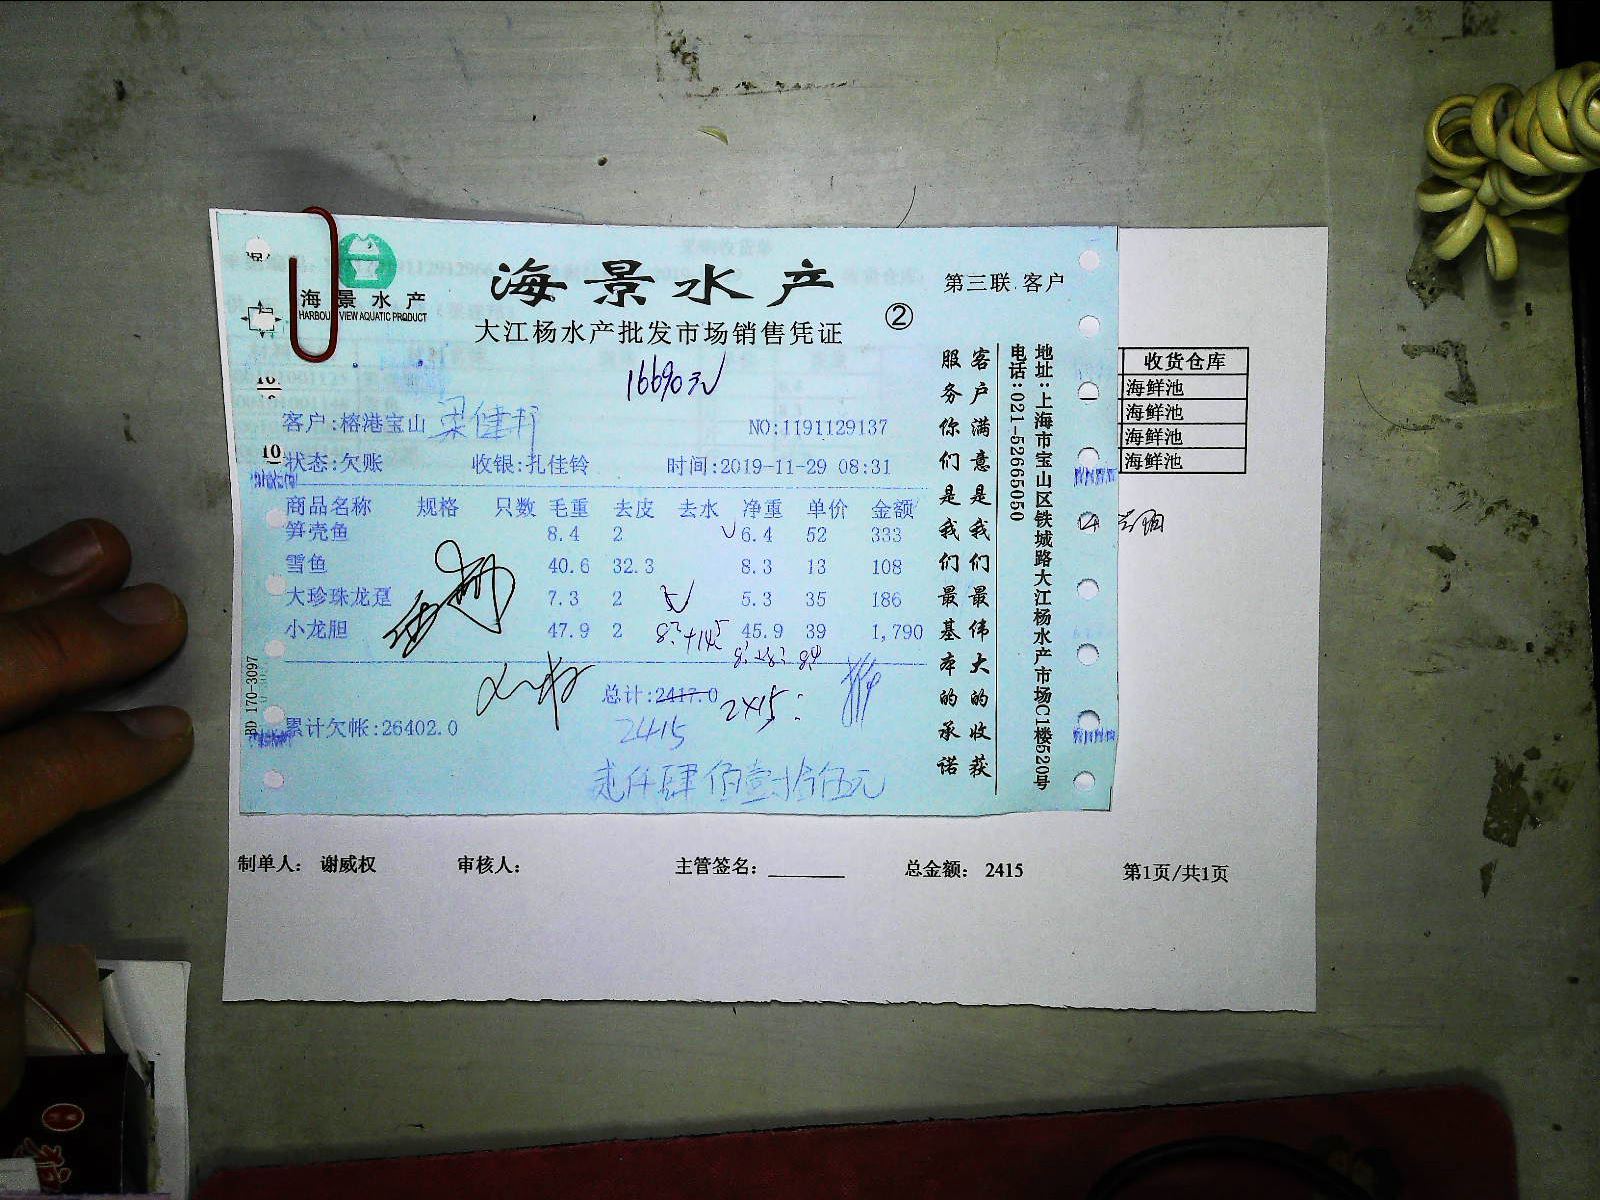 海景水产
HARBOUR VIEW AQUATIC PRODUCT
海景水产
第三联 客户
大江杨水产批发市场销售凭证
②
16690元
客户:榕港宝山 梁健邦
NO:1191129137
状态:欠账 收银:孔佳铃 时间:2019-11-29 08:31
商品名称 规格 只数 毛重 去皮 去水 净重 单价 金额
笋壳鱼 8.4 2 6.4 52 333
雪鱼 40.6 32.3 8.3 13 108
大珍珠龙趸 7.3 2 5.3 35 186
小龙胆 47.9 2 45.9 39 1,790
总计:2417.0 2415
2415
累计欠帐:26402.0
贰仟肆佰壹拾伍元
BD 170-3097
客户满意是我们最伟大的收获
服务你们是我们最基本的承诺
地址:上海市宝山区铁城路大江杨水产市场C1楼520号
电话:021-52665050
收货仓库
海鲜池
海鲜池
海鲜池
海鲜池
制单人: 谢威权 审核人: 主管签名: 总金额: 2415 第1页/共1页